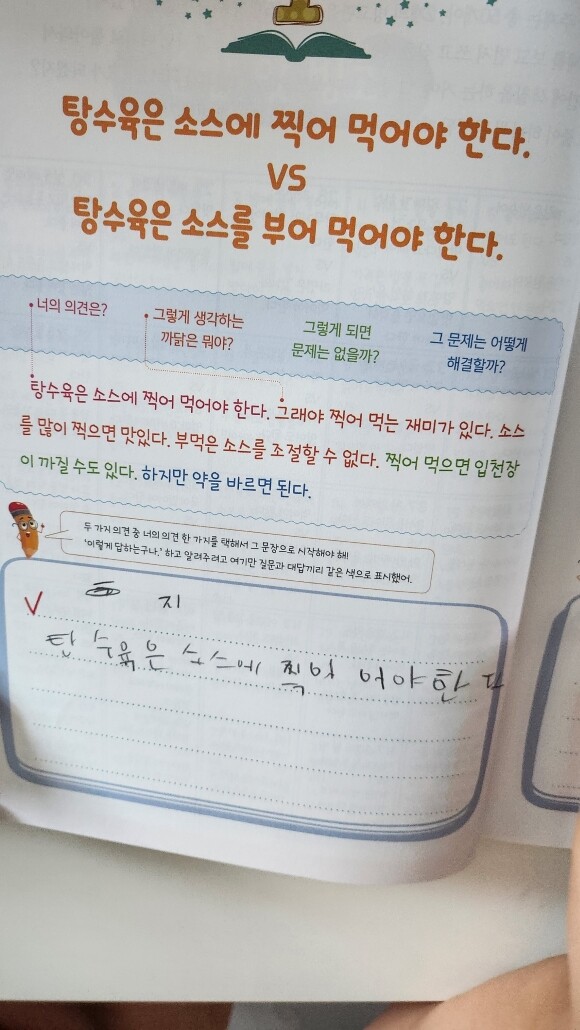 탕수육은 소스에 찍어 먹어야 한다.
VS
탕수육은 소스를 부어 먹어야 한다.
너의 의견은?
그렇게 생각하는
까닭은 뭐야?
그렇게 되면
문제는 없을까?
그 문제는 어떻게
해결할까?
탕수육은 소스에 찍어 먹어야 한다. 그래야 찍어 먹는 재미가 있다. 소스
를 많이 찍으면 맛있다. 부먹은 소스를 조절할 수 없다. 찍어 먹으면 입천장
이 까질 수도 있다. 하지만 약을 바르면 된다.
두 가지 의견 중 너의 의견 한 가지를 택해서 그 문장으로 시작해야 해!
'이렇게 답하는구나.' 하고 알려주려고 여기만 질문과 대답끼리 같은 색으로 표시했어.
V
지
수육은 소스에 찍어 어야 한